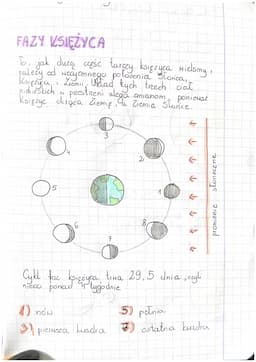 FAZY KSIĘŻYCA
To, jak dużą część tarczy księżyca widzimy,
zależy od wzajemnego położenia Słońca,
Księżyca i Ziemi. Układ tych trzech ciał
niebieskich w przestrzeni ulega zmianom, ponieważ
Księżyc okrąża Ziemię, a Ziemia Słońce.
3
4
2
5
1
6
8
7
promienie słoneczne
Cykl faz księżyca trwa 29,5 dnia, czyli
nieco ponad 4 tygodnie
1) nów
5) pełnia
3) pierwsza kwadra
7) ostatnia kwadra